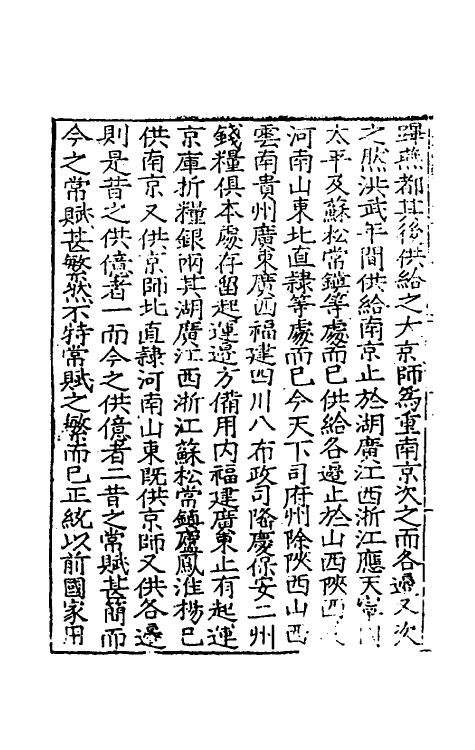 蹕燕都其後供給之大京師為重南京次之而各邊又次
之然洪武年間供給南京止於湖廣江西浙江應天寧國
太平及蘇松常鎮等處而已供給各邊止於山西陝西
河南山東北直隸等處而已今天下司府州除陝西山西
雲南貴州廣東廣西福建四川八布政司隆慶保安二州
錢糧俱本處存留起運邊方備用內福建廣東止有起運
京庫折糧銀兩其湖廣江西浙江蘇松常鎮廬鳳淮楊已
供南京又供京師北直隸河南山東既供京師又供各邊
則是昔之供億者一而今之供億者二昔之常賦甚簡而
今之常賦甚繁然不特常賦之繁而已正統以前國家用